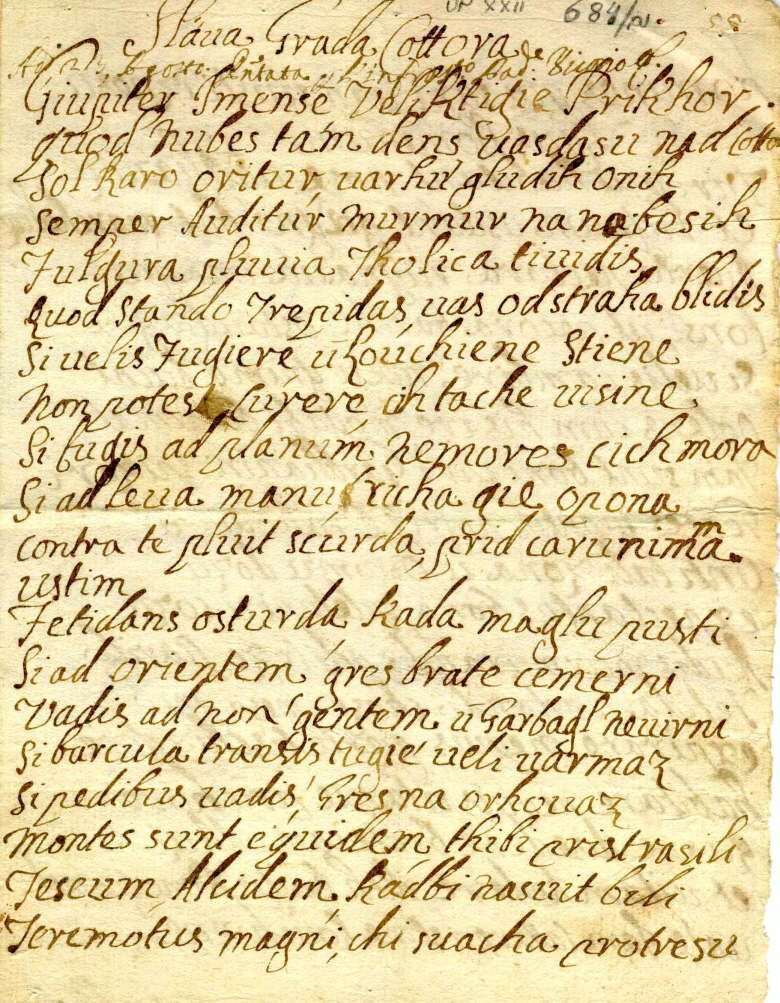 UP XXII 684/21.
Slaua Grada Cottora
Giupiter Imense Veliktigie Prikhor
quod Nubes tam dens uasdasu nad Cotto
Sol Raro oritur, uarhu gludih onih
Semper Auditur murmur na nebesih
Fulgura pluuia Tholica tiuidis
Quod Stando Trepidas uas odstraha blidis
Si uelis Fugiere ū Kouchiene Stiene
Non potes Currere oh tache uisine
Si fugis ad planum nemores cich mora
Si ad leua manu richa gie opona
contra te pluit scurda, prid carunimma
ustim
Fetidans osturda kada maglu pusti
Si ad orientem gres brate cemerni
Vadis ad non gentem ū Garbagl neuirni
Si barcula transis tugie ueli uarmaz
Si pedibus uadis, Gres na orhouaz
Montes sunt equidem thibi pristrasili
Teseum Alcidem kadbi nasuit bili
Teremotus magni, chi suacha protresu